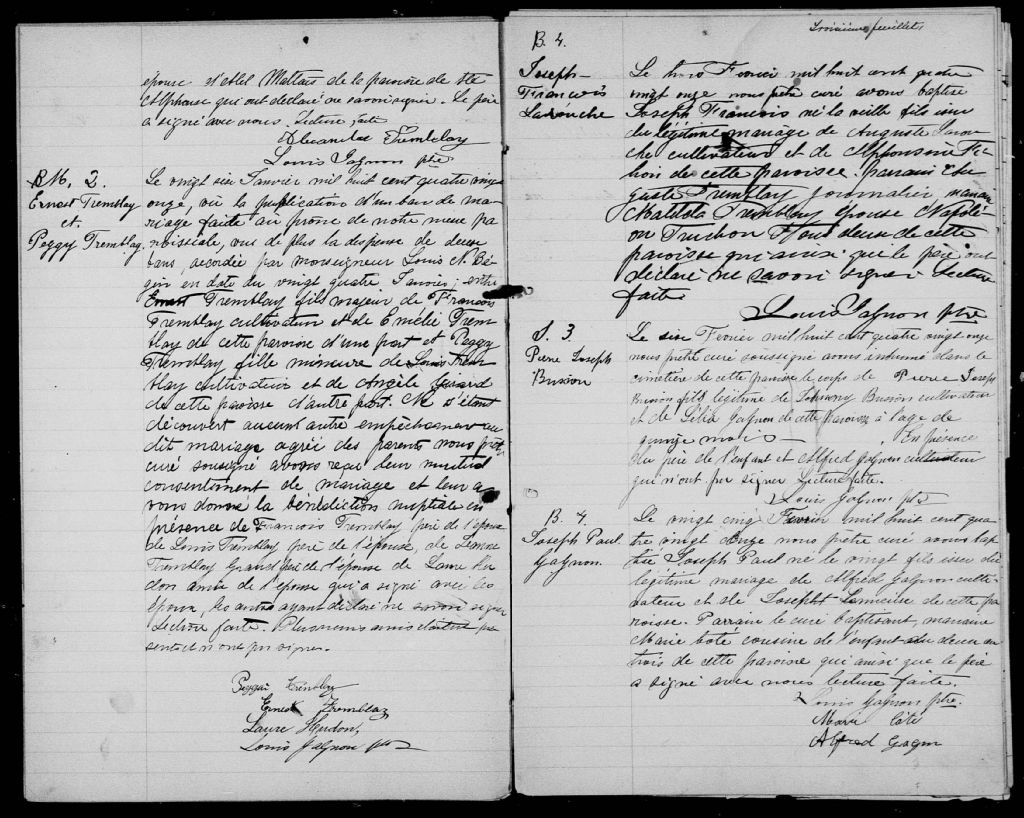 épouse d'Abel Maltais de la paroisse de Ste
Alphonse qui ont déclaré ne savoir signer. Le père
a signé avec nous. Lecture faite
Alexandre Tremblay
Louis Gagnon ptre
M. 2.
Ernest Tremblay
et
Peggy Tremblay.
Le vingt six Janvier mil huit cent quatre vingt
onze, vu la publication d'un ban de ma-
riage faite au prône de notre messe pa-
roissiale, vu de plus la dispense de deux
bans, accordée par monseigneur Louis N. Bé-
gin en date du vingt quatre Janvier; entre
Ernest Tremblay fils majeur de François
Tremblay cultivateur et de Emélie Trem-
blay de cette paroisse d'une part et Peggy
Tremblay fille mineure de Louis Trem-
blay cultivateur et de Angèle Guard
de cette paroisse d'autre part. Ne s'étant
découvert aucun autre empêchement au
dit mariage agréé des parents nous prêtre
curé soussigné avons reçu leur mutuel
consentiment de mariage et leur a-
vons donné la bénédiction nuptiale en
présence de François Tremblay père de l'époux
de Louis Tremblay père de l'épouse, de
Tremblay Grand père de l'épouse de Laure Her-
don amie de l'épouse qui a signé avec les
époux, les autres ayant déclaré ne savoir signer
Lecture faite. Plusieurs amis étaient pré
sents et n'ont pu signer.
Peggy Tremblay
Ernest Tremblay
Laure Herdon,
Louis Gagnon ptre
troisième feuillet
B. 4.
Joseph-
François
Larouche
Le trois Février mil huit cent quatre
vingt onze nous prêtre curé avons baptisé
Joseph François né la veille fils issu
du légitime mariage de Auguste Larou-
che cultivateur et de Alphonsine
de cette paroisse. Parrain Au-
guste Tremblay journalier, marraine
Matilda Tremblay épouse Napolé-
on Truchon tous deux de cette
paroisse qui ainsi que le père ont
déclaré ne savoir signer. Lecture
faite.
Louis Gagnon ptre
S. 3.
Pierre Joseph
Busson
Le six Février mil huit cent quatre vingt onze
nous prêtre curé soussigné avons inhumé dans le
cimetière de cette paroisse le corps de Pierre Joseph
Busson fils légitime de Johnny Busson cultivateur
et de Lélia Gagnon de cette paroisse à l'age de
quinze mois — En présence
du père de l'enfant et Alfred Gagnon cultivateur
qui n'ont pu signer Lecture faite.
Louis Gagnon ptre
B. 4.
Joseph Paul.
Gagnon.
Le vingt cinq Fevrier mil huit cent qua
tre vingt onze nous prêtre curé avons bap
tisé Joseph Paul né le vingt fils issu du
légitime mariage de Alfred Gagnon culti-
vateur et de Lemieux de cette pa
roisse. Parrain le curé baptisant, marraine
Marie Coté cousine de l'enfant
trois de cette paroisse qui ainsi que le père
a signé avec nous lecture faite.
Louis Gagnon ptre.
Marie Côté
Alfred Gagnon